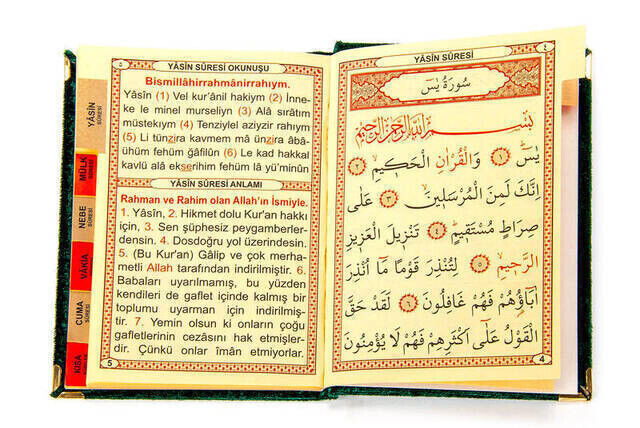 ٥
YÂSİN SÛRESİ OKUNUŞU
Bismillâhirrahmânirrahıym.
Yâsîn (1) Vel kur'ânil hakiym (2) İnne-
ke le minel murseliyn (3) Alâ sırâtım
müstekıym (4) Tenziylel aziyzir rahıym
(5) Li tünzira kavmem mâ ünzira âbâ-
ühüm fehüm ğâfilûn (6) Le kad hakkal
kavlü alâ ekserihim fehüm lâ yü'minûn
YÂSİN SÛRESİ ANLAMI
Rahman ve Rahim olan Allah'ın İsmiyle.
1. Yâsîn, 2. Hikmet dolu Kur'an hakkı
için, 3. Sen şüphesiz peygamberler-
densin. 4. Dosdoğru yol üzerindesin.
5. (Bu Kur'an) Gâlip ve çok merha-
metli Allah tarafından indirilmiştir. 6.
Babaları uyarılmamış, bu yüzden
kendileri de gaflet içinde kalmış bir
toplumu uyarman için indirilmiş-
tir. 7. Yemin olsun ki onların çoğu
gafletlerinin cezasını hak etmişler-
dir. Çünkü onlar îman etmiyorlar.
5
YÂSİN
SÛRESİ
MÜLK
SÛRESİ
NEBE
SÛRESİ
VÂKIA
CUMA
SÛRESİ
KISA
YÂSİN SÛRESİ
٤
سُورَةُ يٰسٓ
بِسْمِ اللّٰهِ الرَّحْمٰنِ الرَّحِيمِ
يٰسٓ ﴿١﴾ وَالْقُرْاٰنِ الْحَكِيمِ ﴿٢﴾
اِنَّكَ لَمِنَ الْمُرْسَلِينَ ﴿٣﴾ عَلٰى
صِرَاطٍ مُسْتَقِيمٍ ﴿٤﴾ تَنْزِيلَ الْعَزِيزِ
الرَّحِيمِ ﴿٥﴾ لِتُنْذِرَ قَوْمًا مَٓا اُنْذِرَ
اٰبَٓاؤُهُمْ فَهُمْ غَافِلُونَ ﴿٦﴾ لَقَدْ حَقَّ
الْقَوْلُ عَلٰٓى اَكْثَرِهِمْ فَهُمْ لَا يُؤْمِنُونَ
4